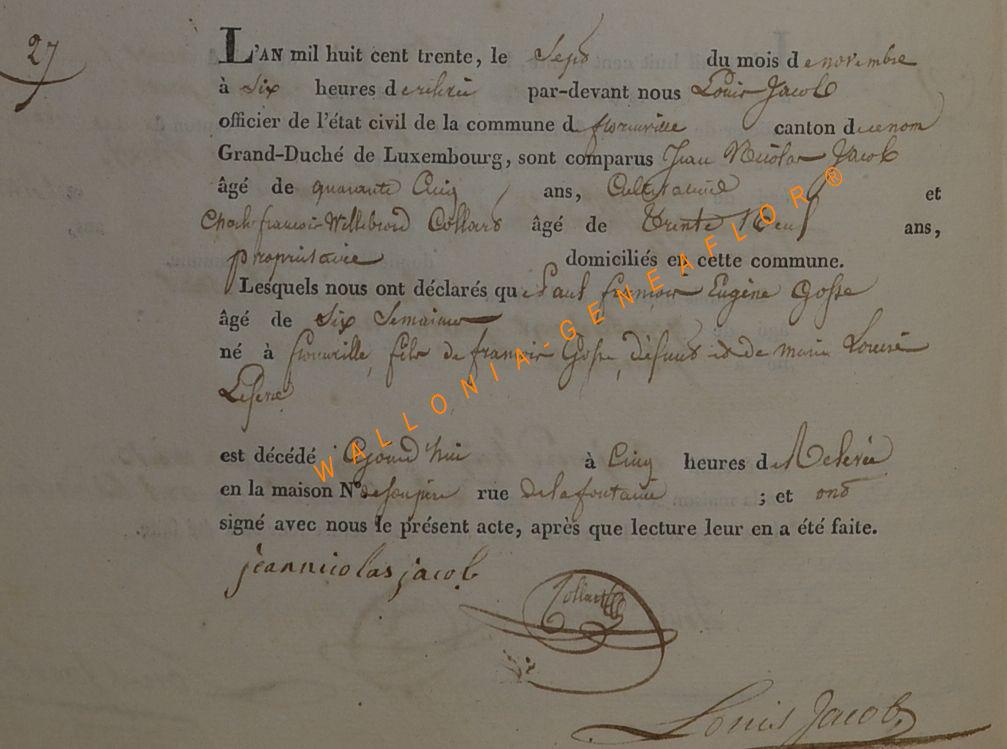 27
L'AN mil huit cent trente, le Sept du mois de novembre
à Six heures de relevée par-devant nous Louis Jacob
officier de l'état civil de la commune de florenville canton du ce nom
Grand-Duché de Luxembourg, sont comparus Jean Nicolas Jacob
âgé de quarante Cinq ans, Cultivateur et
Charle françois Willebrord Collard âgé de trente Neuf ans,
propriétaire domiciliés en cette commune.
Lesquels nous ont déclarés que Paul françois Eugène Gosse
âgé de Six Semaines
né à florenville, fils de françois Gosse, défunt et de marie Louise
est décédé à Cinq heures de Relevée
en la maison N° de son père rue de la fontaine ; et ont
signé avec nous le présent acte, après que lecture leur en a été faite.
jean nicolas jacob
Collard
Louis Jacob
WALLONIA-GENEAFLOR ®